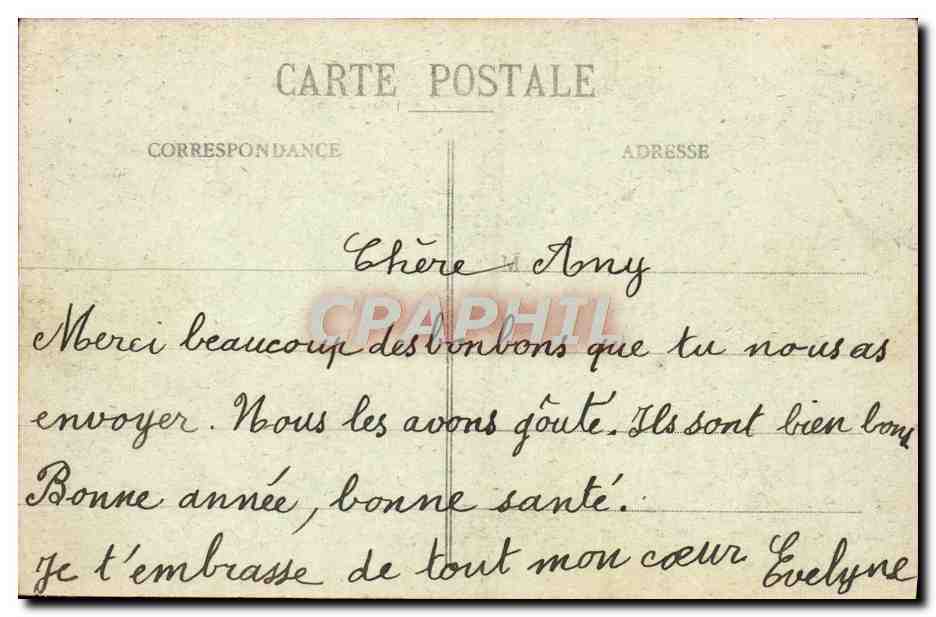 CARTE POSTALE
CORRESPONDANCE ADRESSE
M
Chère Any
CRAPHIL
Merci beaucoup des bonbons que tu nous as
envoyer. Nous les avons gôuté. Ils sont bien bons
Bonne année, bonne santé.
Je t'embrasse de tout mon cœur Evelyne